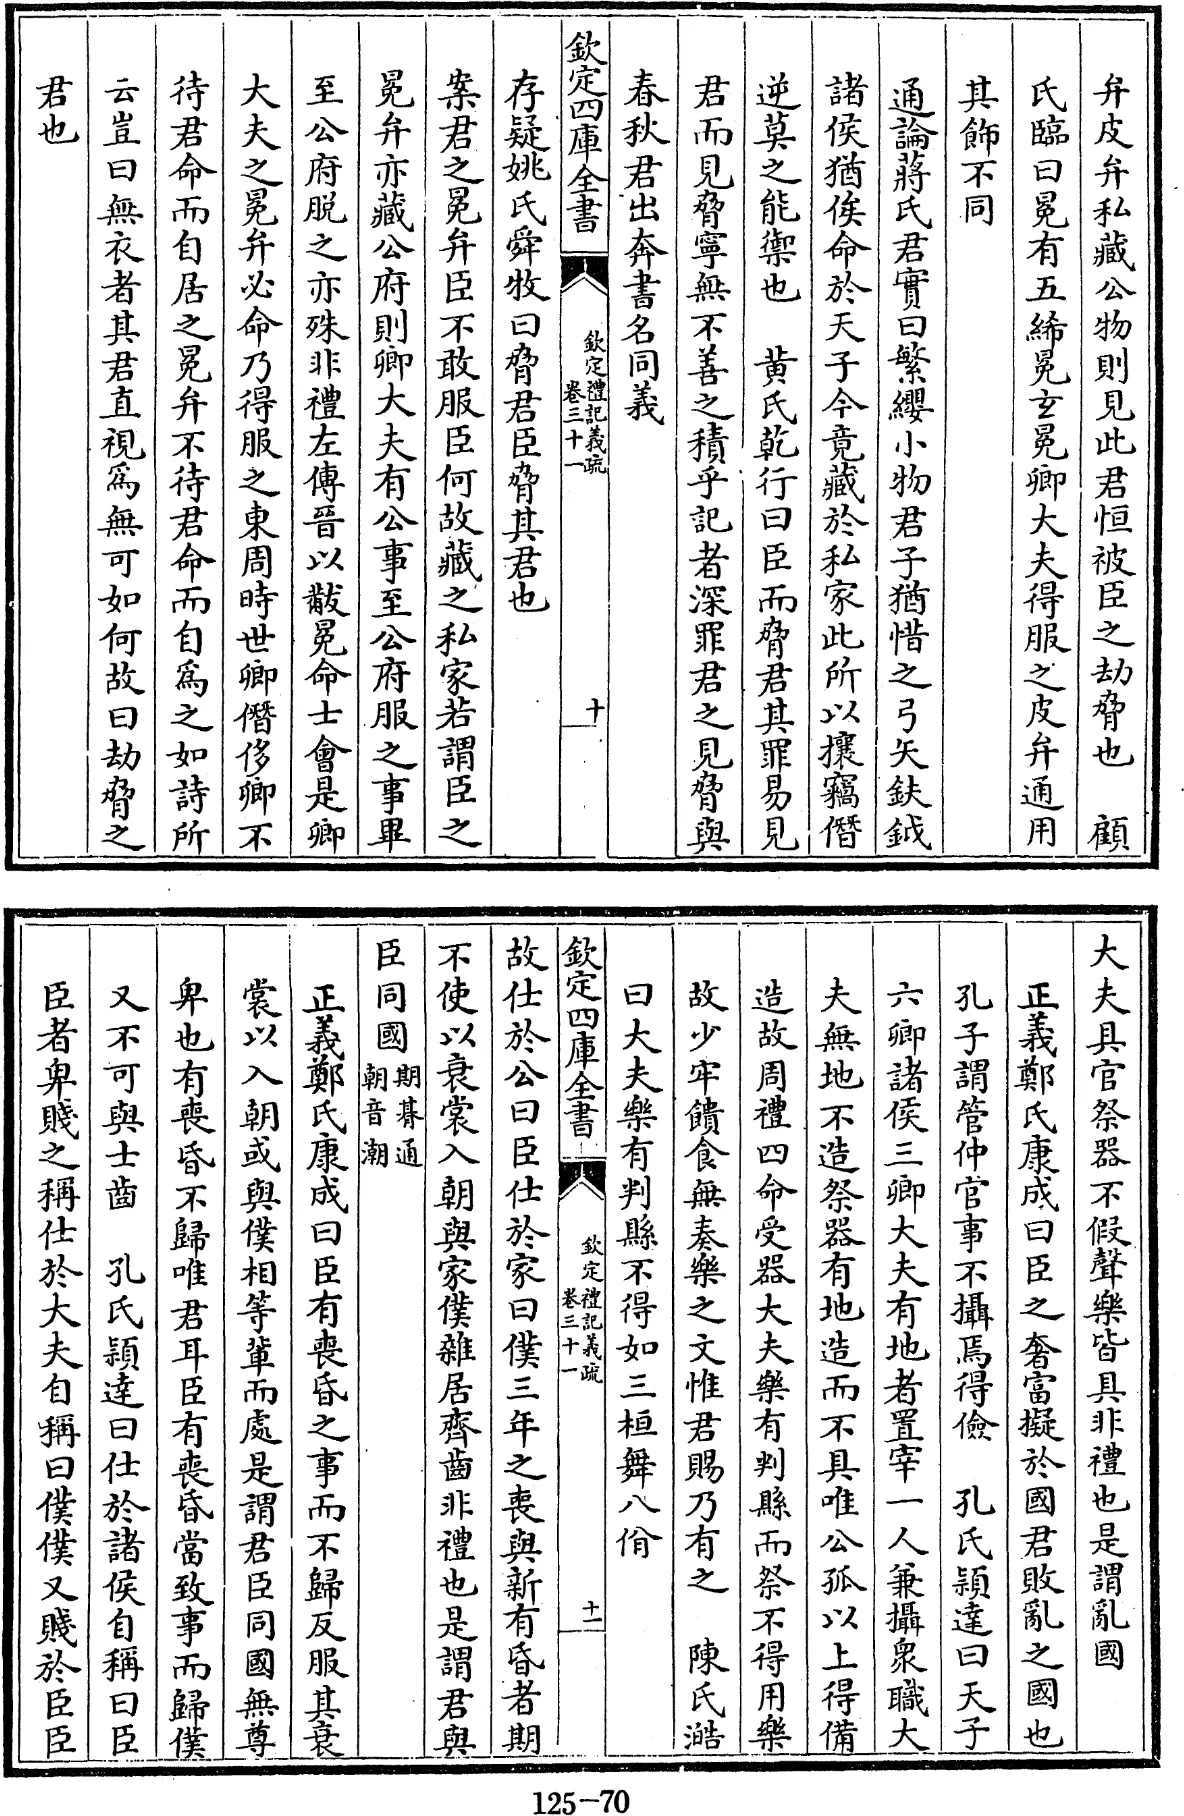 弁皮弁私藏公物則見此君恒被臣之劫脅也　顧
氏臨曰冕有五絺冕玄冕卿大夫得服之皮弁通用
其飾不同
通論蔣氏君實曰繁纓小物君子猶惜之弓矢鈇鉞
諸侯猶俟命於天子今竟藏於私家此所以攘竊僭
逆莫之能禦也　黄氏乾行曰臣而脅君其罪易見
君而見脅寧無不善之積乎記者深罪君之見脅與
春秋君出奔書名同義
欽定四庫全書　欽定禮記義疏　卷三十一　十
存疑姚氏舜牧曰脅君臣脅其君也
案君之冕弁臣不敢服臣何故藏之私家若謂臣之
冕弁亦藏公府則卿大夫有公事至公府服之事畢
至公府脱之亦殊非禮左傳晉以黻冕命士會是卿
大夫之冕弁必命乃得服之東周時世卿僭侈卿不
待君命而自居之冕弁不待君命而自爲之如詩所
云豈曰無衣者其君直視爲無可如何故曰劫脅之
君也
大夫具官祭器不假聲樂皆具非禮也是謂亂國
正義鄭氏康成曰臣之奢富擬於國君敗亂之國也
孔子謂管仲官事不攝焉得儉　孔氏穎達曰天子
六卿諸侯三卿大夫有地者置宰一人兼攝衆職大
夫無地不造祭器有地造而不具唯公孤以上得備
造故周禮四命受器大夫樂有判縣而祭不得用樂
故少牢饋食無奏樂之文惟君賜乃有之　陳氏澔
曰大夫樂有判縣不得如三桓舞八佾
欽定四庫全書　欽定禮記義疏　卷三十一　十一
故仕於公曰臣仕於家曰僕三年之喪與新有昏者期
不使以衰裳入朝與家僕雜居齊齒非禮也是謂君與
臣同國　期朞通　朝音潮
正義鄭氏康成曰臣有喪昏之事而不歸反服其衰
裳以入朝或與僕相等輩而處是謂君臣同國無尊
卑也有喪昏不歸唯君耳臣有喪昏當致事而歸僕
又不可與士齒　孔氏穎達曰仕於諸侯自稱曰臣
臣者卑賤之稱仕於大夫自稱曰僕僕又賤於臣臣
125-70